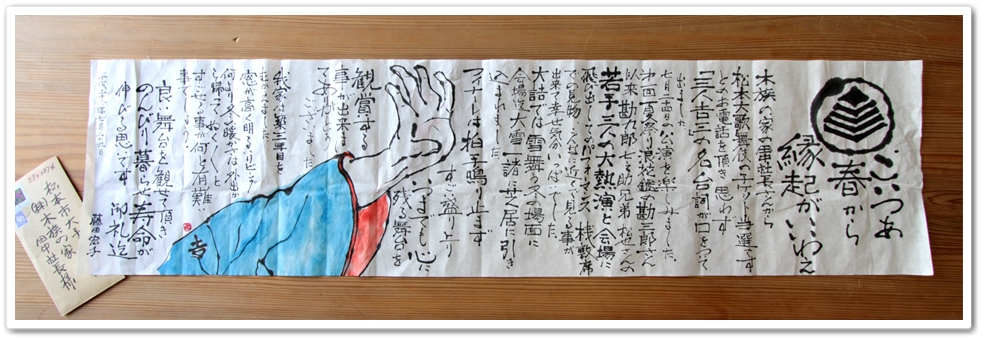 こいつあ
春から
縁起がいいわえ
木族の家 田中社長さんから
松本大歌舞伎のチケット当選です
とのお電話を頂き 思わず
「三人吉三」の名台詞が口をついて
出ました。
七月十四日の公演を楽しみました。
以来 勘九郎 七之助兄弟 松也さんの
若手三人の大熱演と会場に
飛び出してのパフォーマンス 桟敷席
での見物
出来て幸せ気分いっぱいでした。
大詰では雪舞う夕の場面に
会場迄大雪 一諸に芝居に引き
込まれました。
フィナーレは拍手鳴り止まず
すごい盛り上り
いつまでも心に
残る舞台を
観賞する
事が出来ま
して ありがとう
ございました。
我家は築三年目を
窓が高く明るいリビング
何より冬暖かで 外出か
ら帰って ぬくぬくと
すごせる事が何と有難い
事でしょう。
良い舞台を観せて頂き
のんびり暮らせて 寿命が
伸びる思いです 御礼迄
藤田宏子
吉
松本市大手
(株)木族の家
田中社長様